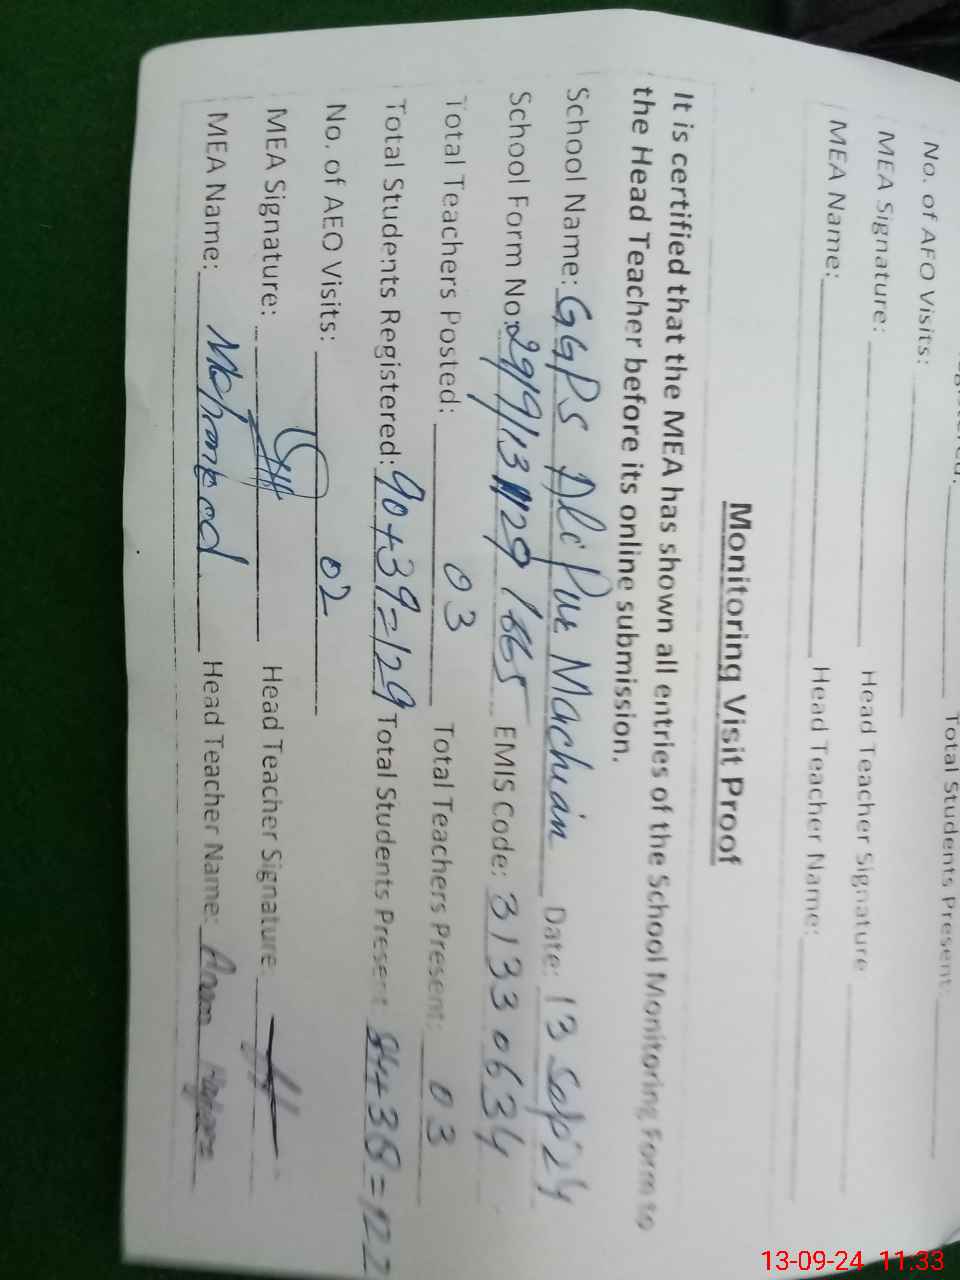 No. of AEO Visits:
Total Students Present:
MEA Signature: Head Teacher Signature
MEA Name: Head Teacher Name:
Monitoring Visit Proof
It is certified that the MEA has shown all entries of the School Monitoring Form to
the Head Teacher before its online submission.
School Name: GGPS Machian Date: 13 Sep 24
School Form No: EMIS Code: 31330634
Total Teachers Posted: 03 Total Teachers Present: 03
Total Students Registered: 90+39=129 Total Students Present: 84+38=122
No. of AEO Visits: 02
MEA Signature: Head Teacher Signature:
MEA Name: Head Teacher Name: Anam
13-09-24 11:33